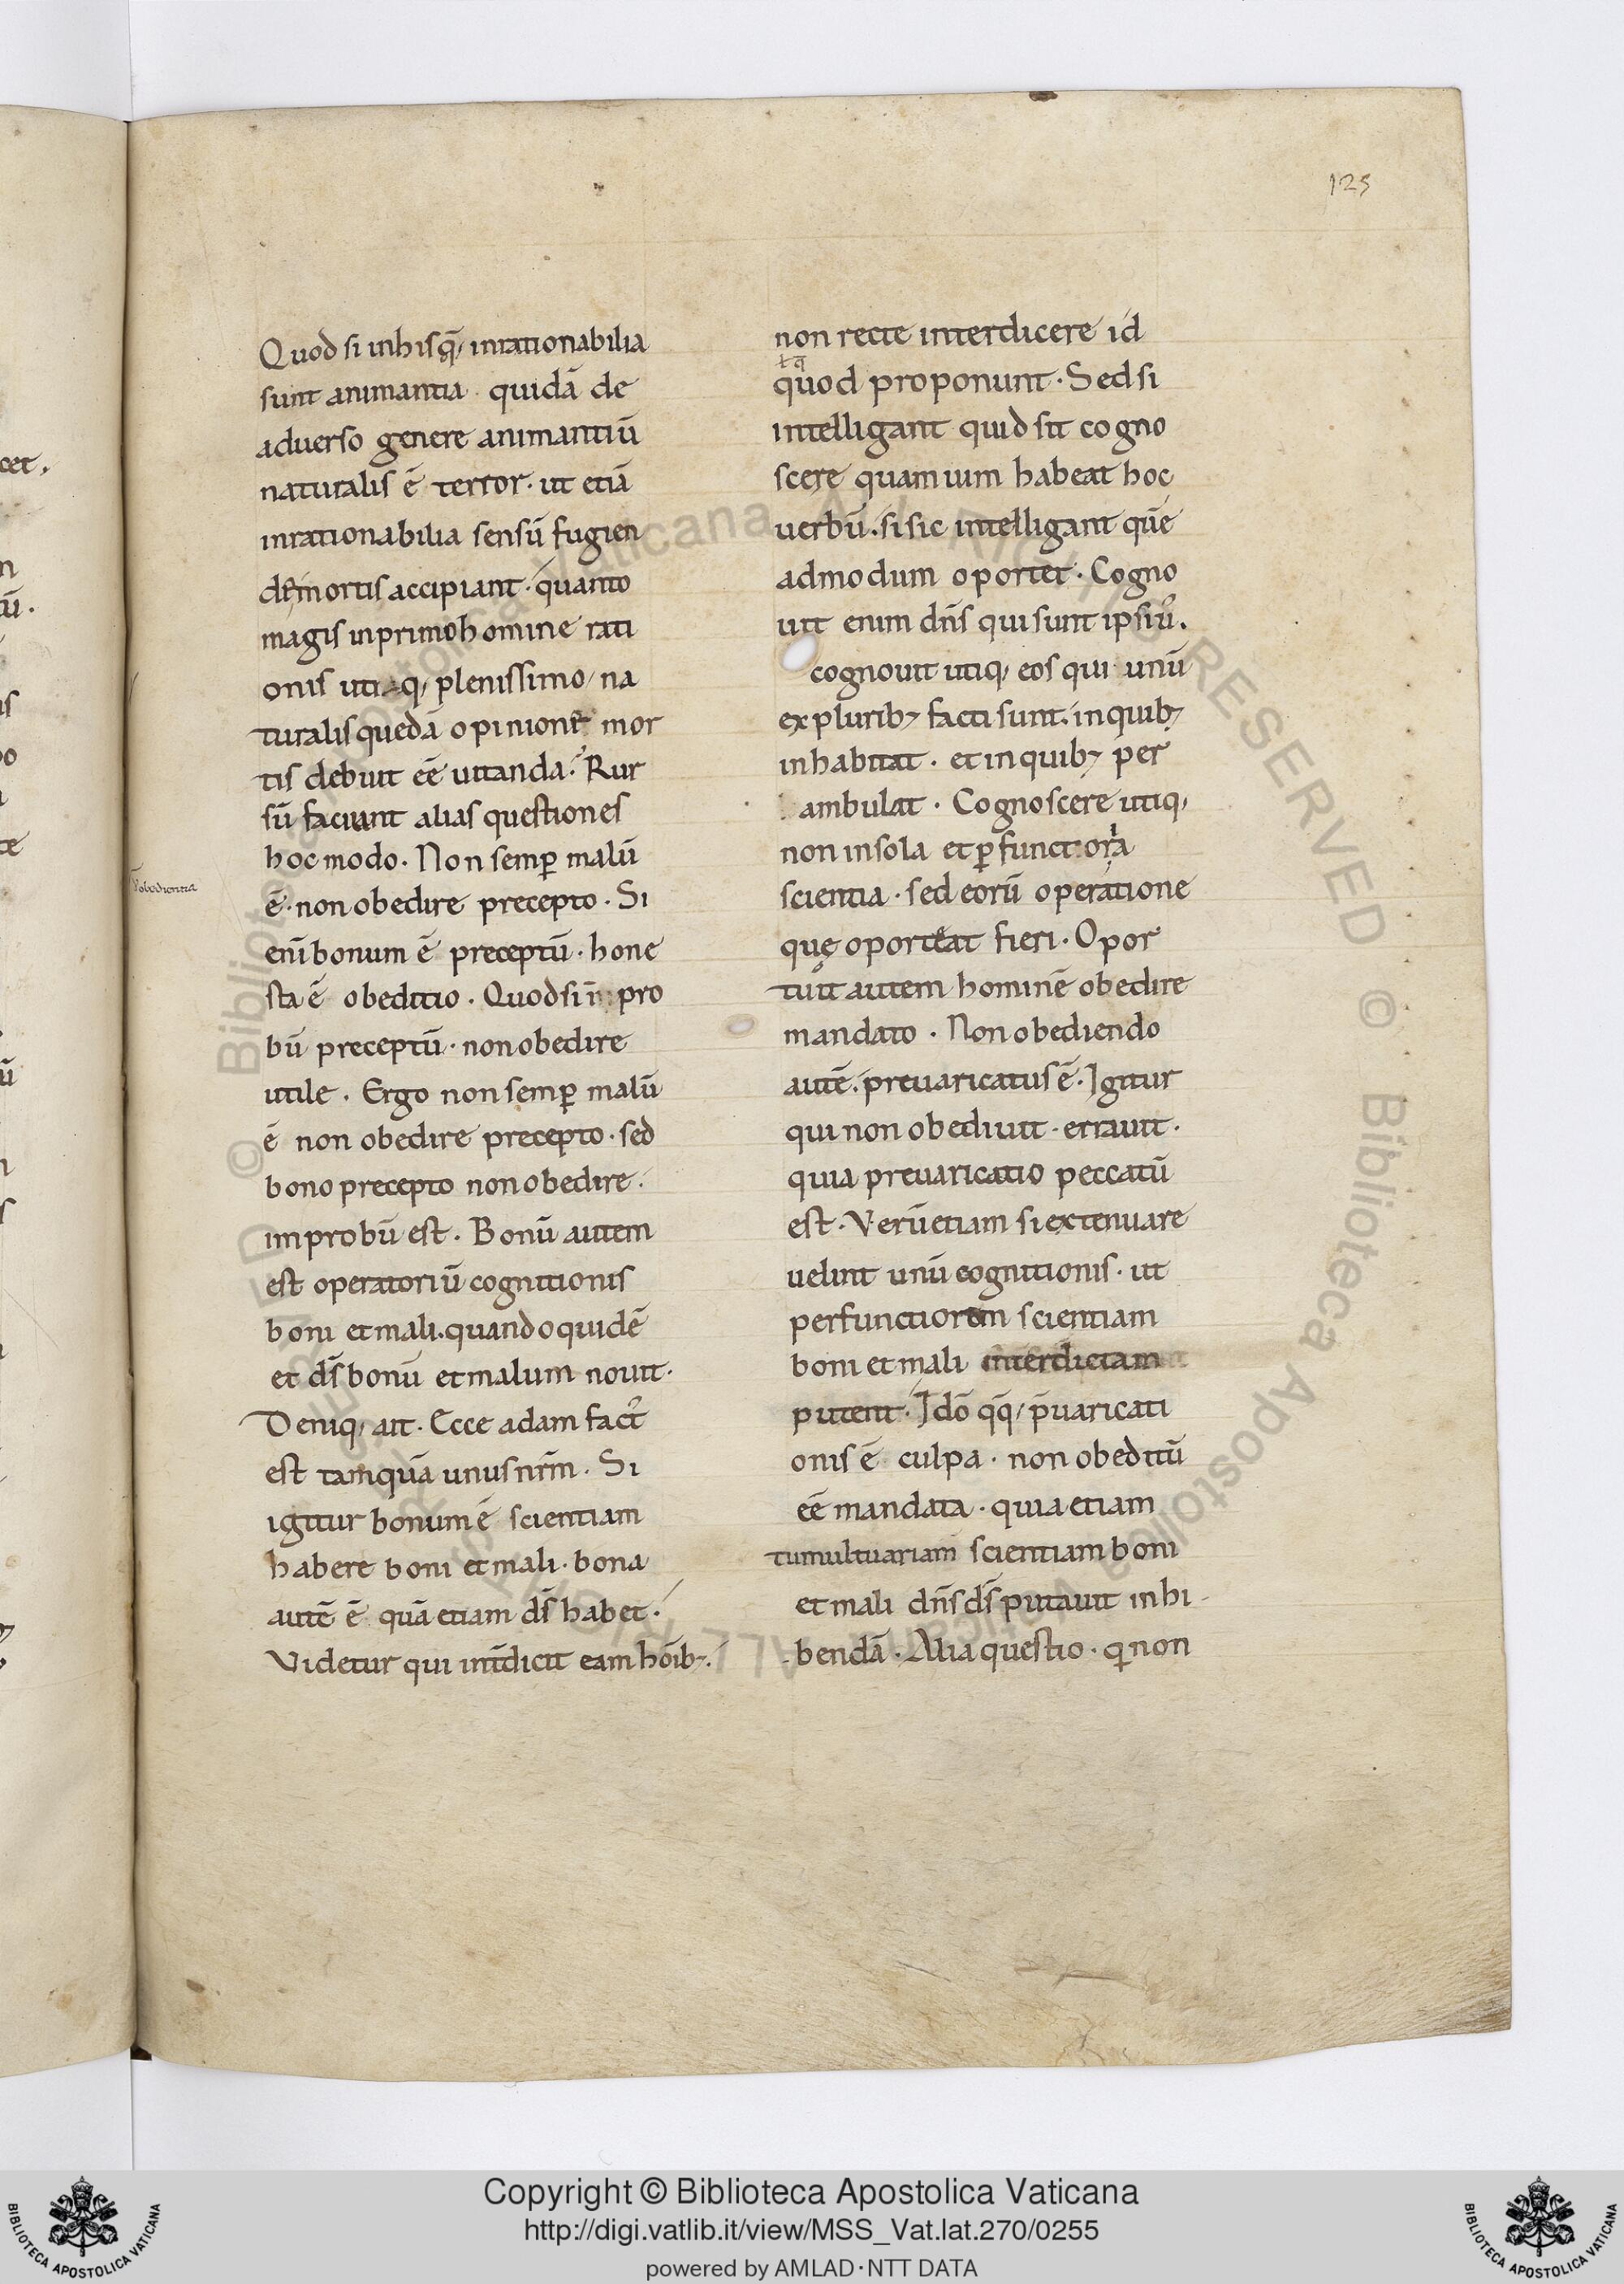 125
Quod si inhisq̄, inrationabilia
sunt animantia quidā de
aduerso genere animantiū
naturalis ē terror· ut etiā
inrationabilia sensū fugien
dę mortis accipiant· quanto
magis inprimo homine rati
onis utiq, plenissimo, na
turalis quedā opinione mor
tis debuit eē uitanda. Rur
sū faciunt alias questiones
hoc modo. Non semꝑ malū
ē· non obedire precepto. Si
enī bonum ē preceptū· hone
sta ē obeditio. Quodsi im pro
bū preceptū· non obedire
utile. Ergo non semꝑ malū
ē non obedire precepto· sed
bono precepto non obedire.
improbū est. Bonū autem
est operatoriū cognitionis
boni et mali. quando quidē
et ds̄ bonū et malum nouit.
Deniq, ait. Ecce adam fact᾿
est tamquā unus nr̄m. Si
igitur bonum ē scientiam
habere boni et mali. bona
autē ē quā etiam ds̄ habet.
Videtur qui int̄dicit eam hōib;.
uobedientia
non recte interdicere id
ł q̄
quod proponunt. Sed si
intelligant quid sit cogno
scere quam uim habeat hoc
uerbū. si sic intelligant quē
admodum oportet. Cogno
uit enim dn̄s qui sunt ipsiu᾿.
cognouit utiq, eos qui unū
ex plurib; facti sunt. in quib;
inhabitat. et in quib; per
ambulat. Cognoscere utiq,
non in sola et ꝑfunctoria
scientia. sed eorū operatione
quę oporteat fieri. Opor
tuit autem hominē obedire
mandato. Non obediendo
autē. preuaricatus ē. Igitur
qui non obediuit· errauit.
quia preuaricatio peccatū
est. Verū etiam si extenuare
uelint unū cognitionis. ut
perfunctiorem scientiam
boni et mali interdictam
putent. Idō qq̄, p̄uaricati
onis ē culpa. non obeditū
eē mandata. quia etiam
tumultuariam scientiam boni
et mali dn̄s ds̄ putauit inhi-
bendā. Alia questio. ꝙ non
Copyright © Biblioteca Apostolica Vaticana
http://digi.vatlib.it/view/MSS_Vat.lat.270/0255
powered by AMLAD·NTT DATA
BIBLIOTECA APOSTOLICA VATICANA
BIBLIOTECA APOSTOLICA VATICANA